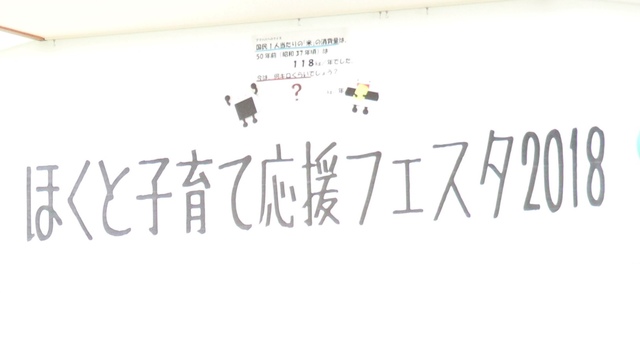 国民1人当たりの「米」の消費量は、
50年前（昭和37年頃）は
118kg/年でした。
今は、何キロくらいでしょう？
?
ほくと子育て応援フェスタ2018